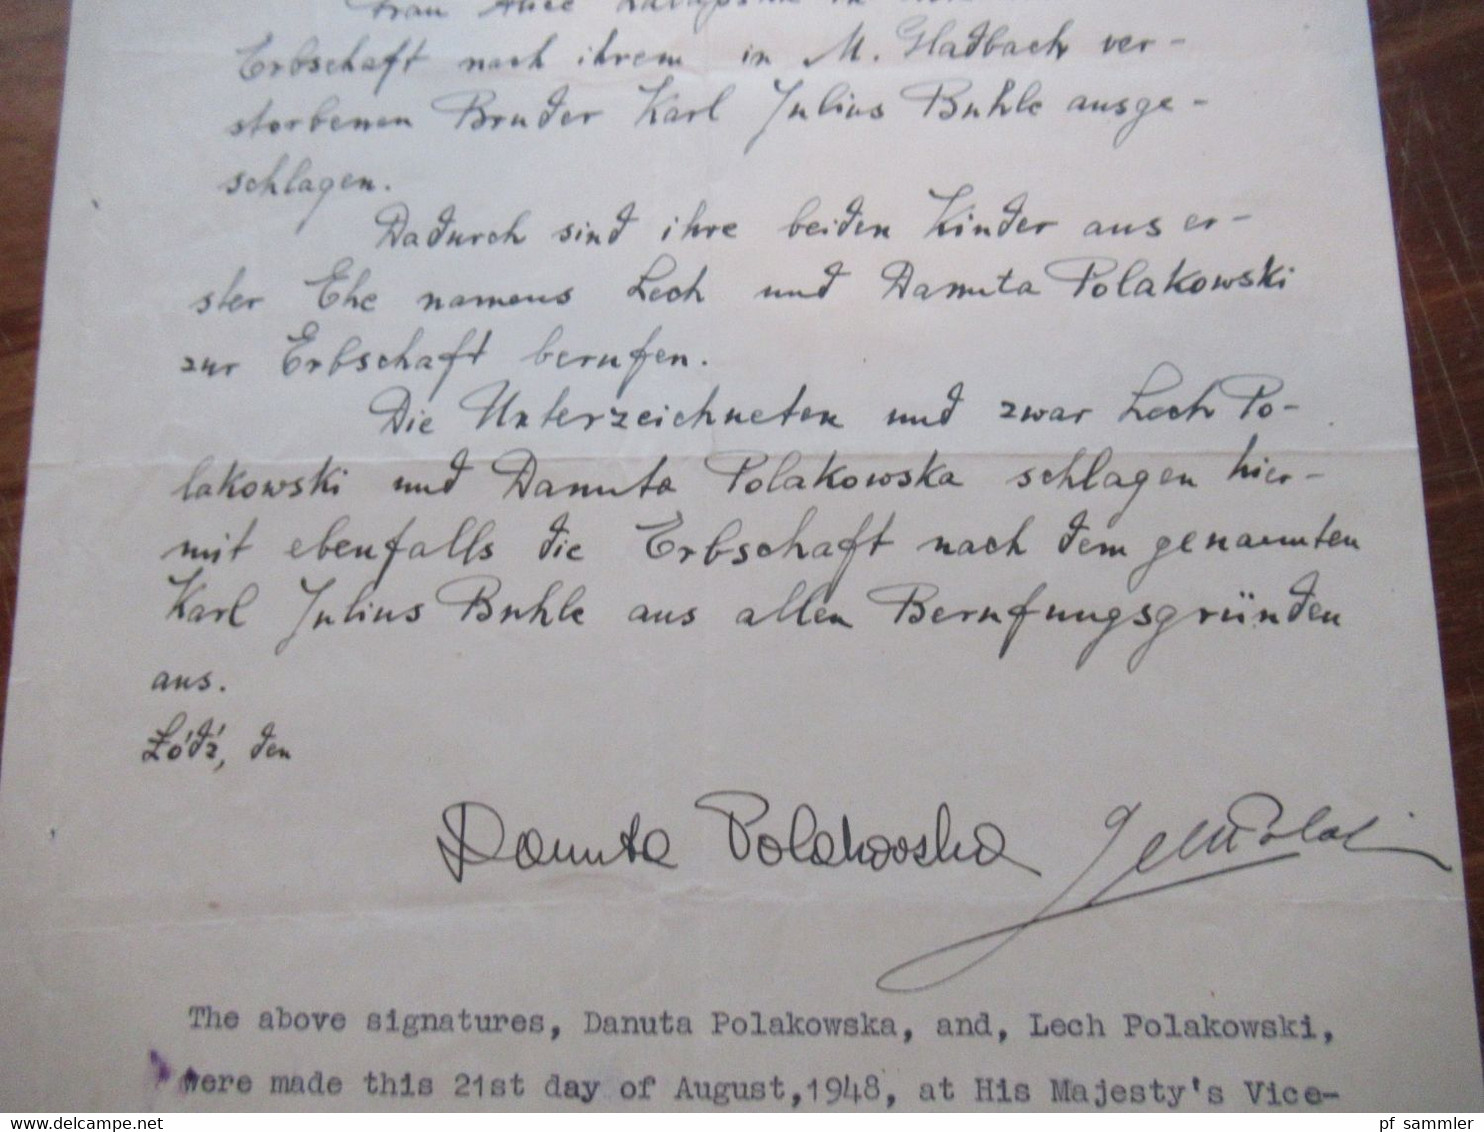 Frau Alice
Erbschaft nach ihrem in M. Gladbach ver-
storbenen Bruder Karl Julius Buhle ausge-
schlagen.
Dadurch sind ihre beiden Kinder aus er-
ster Ehe namens Lech und Danuta Polakowski
zur Erbschaft berufen.
Die Unterzeichneten und zwar Lech Po-
lakowski und Danuta Polakowska schlagen hier-
mit ebenfalls die Erbschaft nach dem genannten
Karl Julius Buhle aus allen Berufungsgründen
aus.
Łódź, den
Danuta Polakowska
The above signatures, Danuta Polakowska, and, Lech Polakowski,
were made this 21st day of August,1948, at His Majesty's Vice-
hipstamp.com
pf_sammler